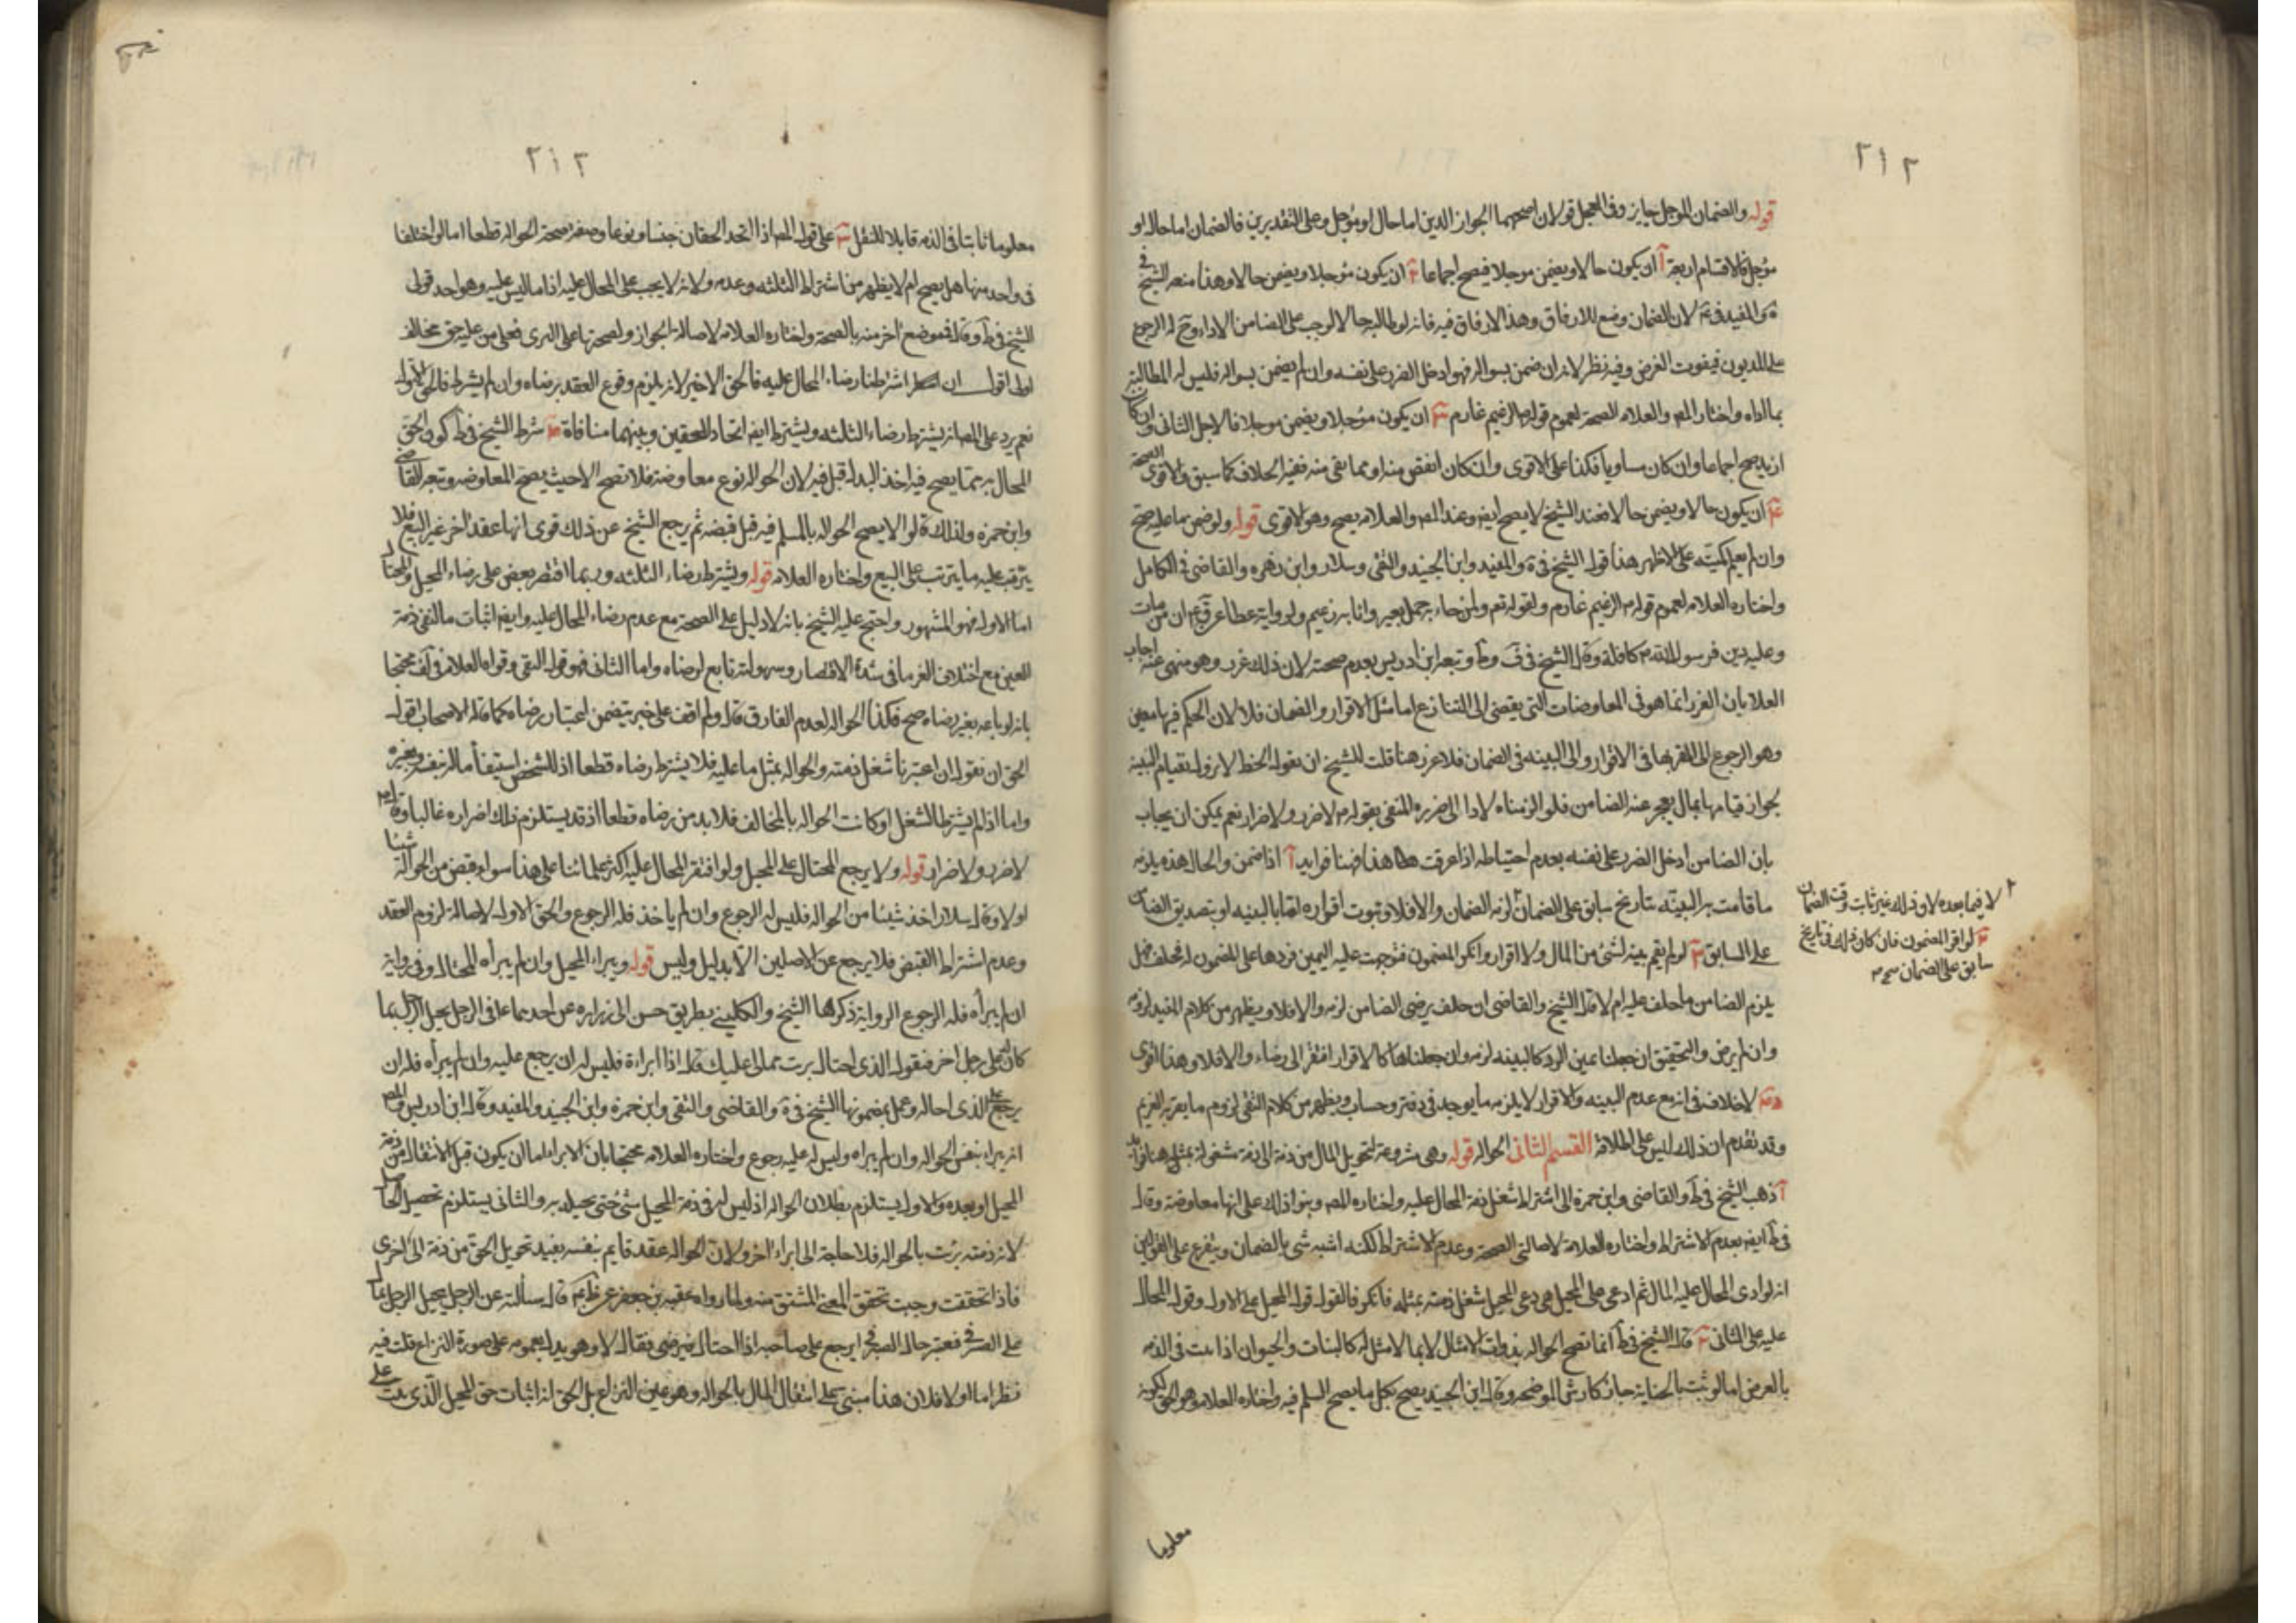 ٢١٢
قوله والضمان المؤجل جايز وفى المعجل قولان اصحهما الجواز الدين اما حال او مؤجل وعلى التقديرين فالضمان اما حال او
مؤجل فالاقسام اربعة آ ان يكون حالا ويضمن موجلا فيصح اجماعا ان يكون مؤجلا ويضمن حالا وهذا منعه الشيخ فى
والمفيد فى لان الضمان وضع للارفاق وهذا لا رفاق فيه فانه لو طالبه حالا لوجب على الضامن الاداء وح له الرجوع
على المديون فيفوت الغرض وفيه نظر لانه ان ضمن بسواله فهو ادخل الضرر على نفسه وان لم يضمن بسواله فليس له المطالبة
بما اداه واختار المصـ والعلامه الصحة لعموم قوله الزعيم غارم ان يكون مؤجلا ويضمن موجلا فالاجل الثانى ان كان
ازيد صح اجماعا وان كان مساويا فكذا على الاقوى وان كان انقص منه او مما بقى منه ففيه الخلاف كما سبق والاقوى الصحة
ان يكون حالا ويضمن حالا فعند الشيخ لا يصح ايضا وعند المصـ والعلامه يصح وهو الاقوى قوله ولو ضمن ما عليه صح
وان لم يعلم كميته على الاظهر هذا قول الشيخ فى والمفيد وابن الجنيد والتقى وسلار وابن زهره والقاضى فى الكامل
واختاره العلامه لعموم قوله الزعيم غارم ولقوله تعم ولمن جاء به حمل بعير وانا به زعيم ولرواية عطا عن ان من مات
وعليه دين فرسول الله كافله وقال الشيخ فى ف وط وتبعه ابن ادريس بعدم صحته لان ذلك غرر وهو منهى عنه اجاب
العلا بان الغرر انما هو فى المعاوضات التى يفضى الى التنازع اما مثل الاقرار والضمان فلا لان الحكم فيها معين
وهو الرجوع الى المقر بها فى الاقرار والى البينه فى الضمان فلا غرر هنا قلت للشيخ ان يقول الخطر لا يزول بقيام البينه
بجواز قيامها بمال يعجز عنه الضامن فلو الزمناه لادا الى ضرره المنفى بقوله لا ضرر ولا ضرار نعم يمكن ان يجاب
بان الضامن ادخل الضرر على نفسه بعدم احتياطه اذا عرفت هذا فهنا فوايد آ اذا ضمن والحال هذه يلزمه
ما قامت به البينه بتاريخ سابق على الضمان لزمه الضمان والا فلا وثبوت اقراره اما بالبينه او بتصديق الضامن
على السابق لو لم يقم بينه لشئ من المال ولا اقرار وانكر المضمون فتوجهت عليه اليمين فردها على المضمون له فحلف هل
يلزم الضامن ما حلف عليه ام لا قال الشيخ والقاضى ان حلف برضى الضامن لزمه والا فلا ويظهر من كلام المفيد لزومه
وان لم يرض والتحقيق ان جعلنا يمين الرد كالبينه لزمه وان جعلناها كالاقرار افتقر الى رضاه والا فلا وهذا اقوى
لا خلاف فى انه مع عدم البينه والاقرار لا يلزمه ما يوجد فى دفتر وحساب ويظهر من كلام التقى لزوم ما يقر به الغريم
وقد تقدم ان ذلك ليس على اطلاقه القسم الثانى الحواله قوله وهى مشروعة لتحويل المال من ذمة الى ذمة مشغولة بمثله هنا فوايد
آ ذهب الشيخ فى ط والقاضى وابن حمزه الى اشتراط شغل ذمة المحال عليه واختاره المصـ وبنوا ذلك على انها معاوضة وقال
فى ط ايضا بعدم الاشتراط واختاره العلامه لاصالتى الصحة وعدم الاشتراط لكنه اشبه شئ بالضمان ويتفرع على القولين
انه لو ادى المحال عليه المال ثم ادعى على المحيل فادعى المحيل شغل ذمته بمثله فانكر فالقول قول المحيل على الاول وقول المحال
عليه على الثانى قال الشيخ فى ط انما تصح الحواله بذوات الامثال لا بما لا مثل له كالنبات والحيوان اذا ثبت فى الذمه
بالعرض اما لو ثبت بالجنايه جاز كارش الموضحه وقال ابن الجنيد يصح بكل ما يصح السلم فيه واختاره العلامه وهو الحق لكونه
لا فيما بعده لان ذلك غير ثابت وقت الضمان
لو اقر المضمون فان كان ذلك فى تاريخ
سابق على الضمان صح
معلوما
٢١٣
معلوما ثابتا فى الذمه قابلا للنقل على قول المصـ اذا اتحد الحقان جنسا ونوعا وصفة صحة الحواله قطعا اما لو اختلفا
فى واحد منها هل يصح ام لا يظهر من اشتراط الثلثه وعدمه ولانه لا يجب على المحال عليه اذا ما ليس عليه وهو احد قولى
الشيخ فى ط وقال فى موضع اخر منه بالصحة واختاره العلامه لاصالة الجواز ولصحتها على البرى فعلى من عليه حق مخالف
اولى اقول ان اشترطنا رضاء المحال عليه فالحق الاخير لانه يلزم وقوع العقد برضاه وان لم يشترط فالحق الاول
نعم يرد على المصـ انه يشترط رضاء الثلثه ويشترط ايضا اتحاد الحقين وبينهما منافاة شرط الشيخ فى ط كون الحق
المحال به مما يصح فيه اخذ البدل قبل قبضه لان الحواله نوع معاوضه فلا تصح الا حيث يصح المعاوضه وتبعه القاضى
وابن حمزه ولذلك قالوا لا يصح الحواله بالمسلم فيه قبل قبضه ثم يرجع الشيخ عن ذلك قوى انها عقد اخر غير البيع فلا
يترتب عليه ما يترتب على البيع واختاره العلامه قوله ويشترط رضاء الثلثه وربما اقتصر بعض على رضاء المحيل والمحتال
اما الاول فهو المشهور واحتج عليه الشيخ بانه لا دليل على الصحة مع عدم رضاء المحال عليه وايضا اثبات مال فى ذمة
الغير مع اختلاف الغرما فى شدة الاقتصار وسهولته تابع لرضاه واما الثانى فهو قول التقى وقواه العلامه فى لف محتجا
بانه لو باعه بغير رضاه صح فكذا الحواله لعدم الفارق قال ولم اقف على خبر يتضمن اعتبار رضاه كما قاله الاصحاب اقول
الحق ان نقول ان اعتبرنا شغل ذمته والحواله بمثل ما عليه فلا يشترط رضاه قطعا اذ للشخص استيفاء ماله بنفسه وبغيره
واما اذا لم يشترط الشغل او كانت الحواله بالمخالف فلا بد من رضاه قطعا اذ قد يستلزم ذلك اضراره غالبا وقال
لا ضرر ولا ضرار قوله ولا يرجع المحتال على المحيل ولو افتقر المحال عليه اكثر علمائنا على هذا سواء قبض من الحواله شيئا
او لا وقال سلار اخذ شيئا من الحواله فليس له الرجوع وان لم ياخذ فله الرجوع والحق الاول لاصالة لزوم العقد
وعدم اشتراط القبض فلا يرجع عن الاصلين الا بدليل وليس قوله ويبراء المحيل وان لم يبرأه المحتال وفى رواية
ان لم يبرأه فله الرجوع الرواية ذكرها الشيخ والكلينى بطريق حسن الى زراره عن احدهما فى الرجل يحيل الرجل بمال
كان له على رجل اخر فيقول له الذى احتال برئت مما لى عليك قال اذا ابراءه فليس له ان يرجع عليه وان لم يبرأه فله ان
يرجع على الذى احاله وعمل بمضمونها الشيخ فى والقاضى والتقى وابن حمزه وابن الجنيد والمفيد وقال ابن ادريس والمصـ
انه يبراء بنفس الحواله وان لم يبراه وليس له عليه رجوع واختاره العلامه محتجا بان الابراء اما ان يكون قبل الانتقال من ذمة
المحيل او بعده والاول يستلزم بطلان الحواله اذ ليس له فى ذمة المحيل شئ حتى يحيله به والثانى يستلزم تحصيل الحاصل
لان ذمته برئت بالحواله فلا حاجة الى ابراء اخر ولان الحواله عقد قايم بنفسه يفيد تحويل الحق من ذمة الى اخرى
فاذا تحققت وجبت تحقق المعنى المشتق منه ولما رواه عقبه بن جعفر عن قال سالته عن الرجل يحيل الرجل بمال
على الصرفى فيعتبر حال الصيرفى ايرجع على صاحبه اذا احتال فيرضى فقال لا وهو يدل بعمومه على صورة النزاع قلت فيه
نظر اما اولا فلان هذا مبنى على انتقال المال بالحواله وهو عين النزاع بل الحق انه اثبات حق المحيل الذى ثبت على